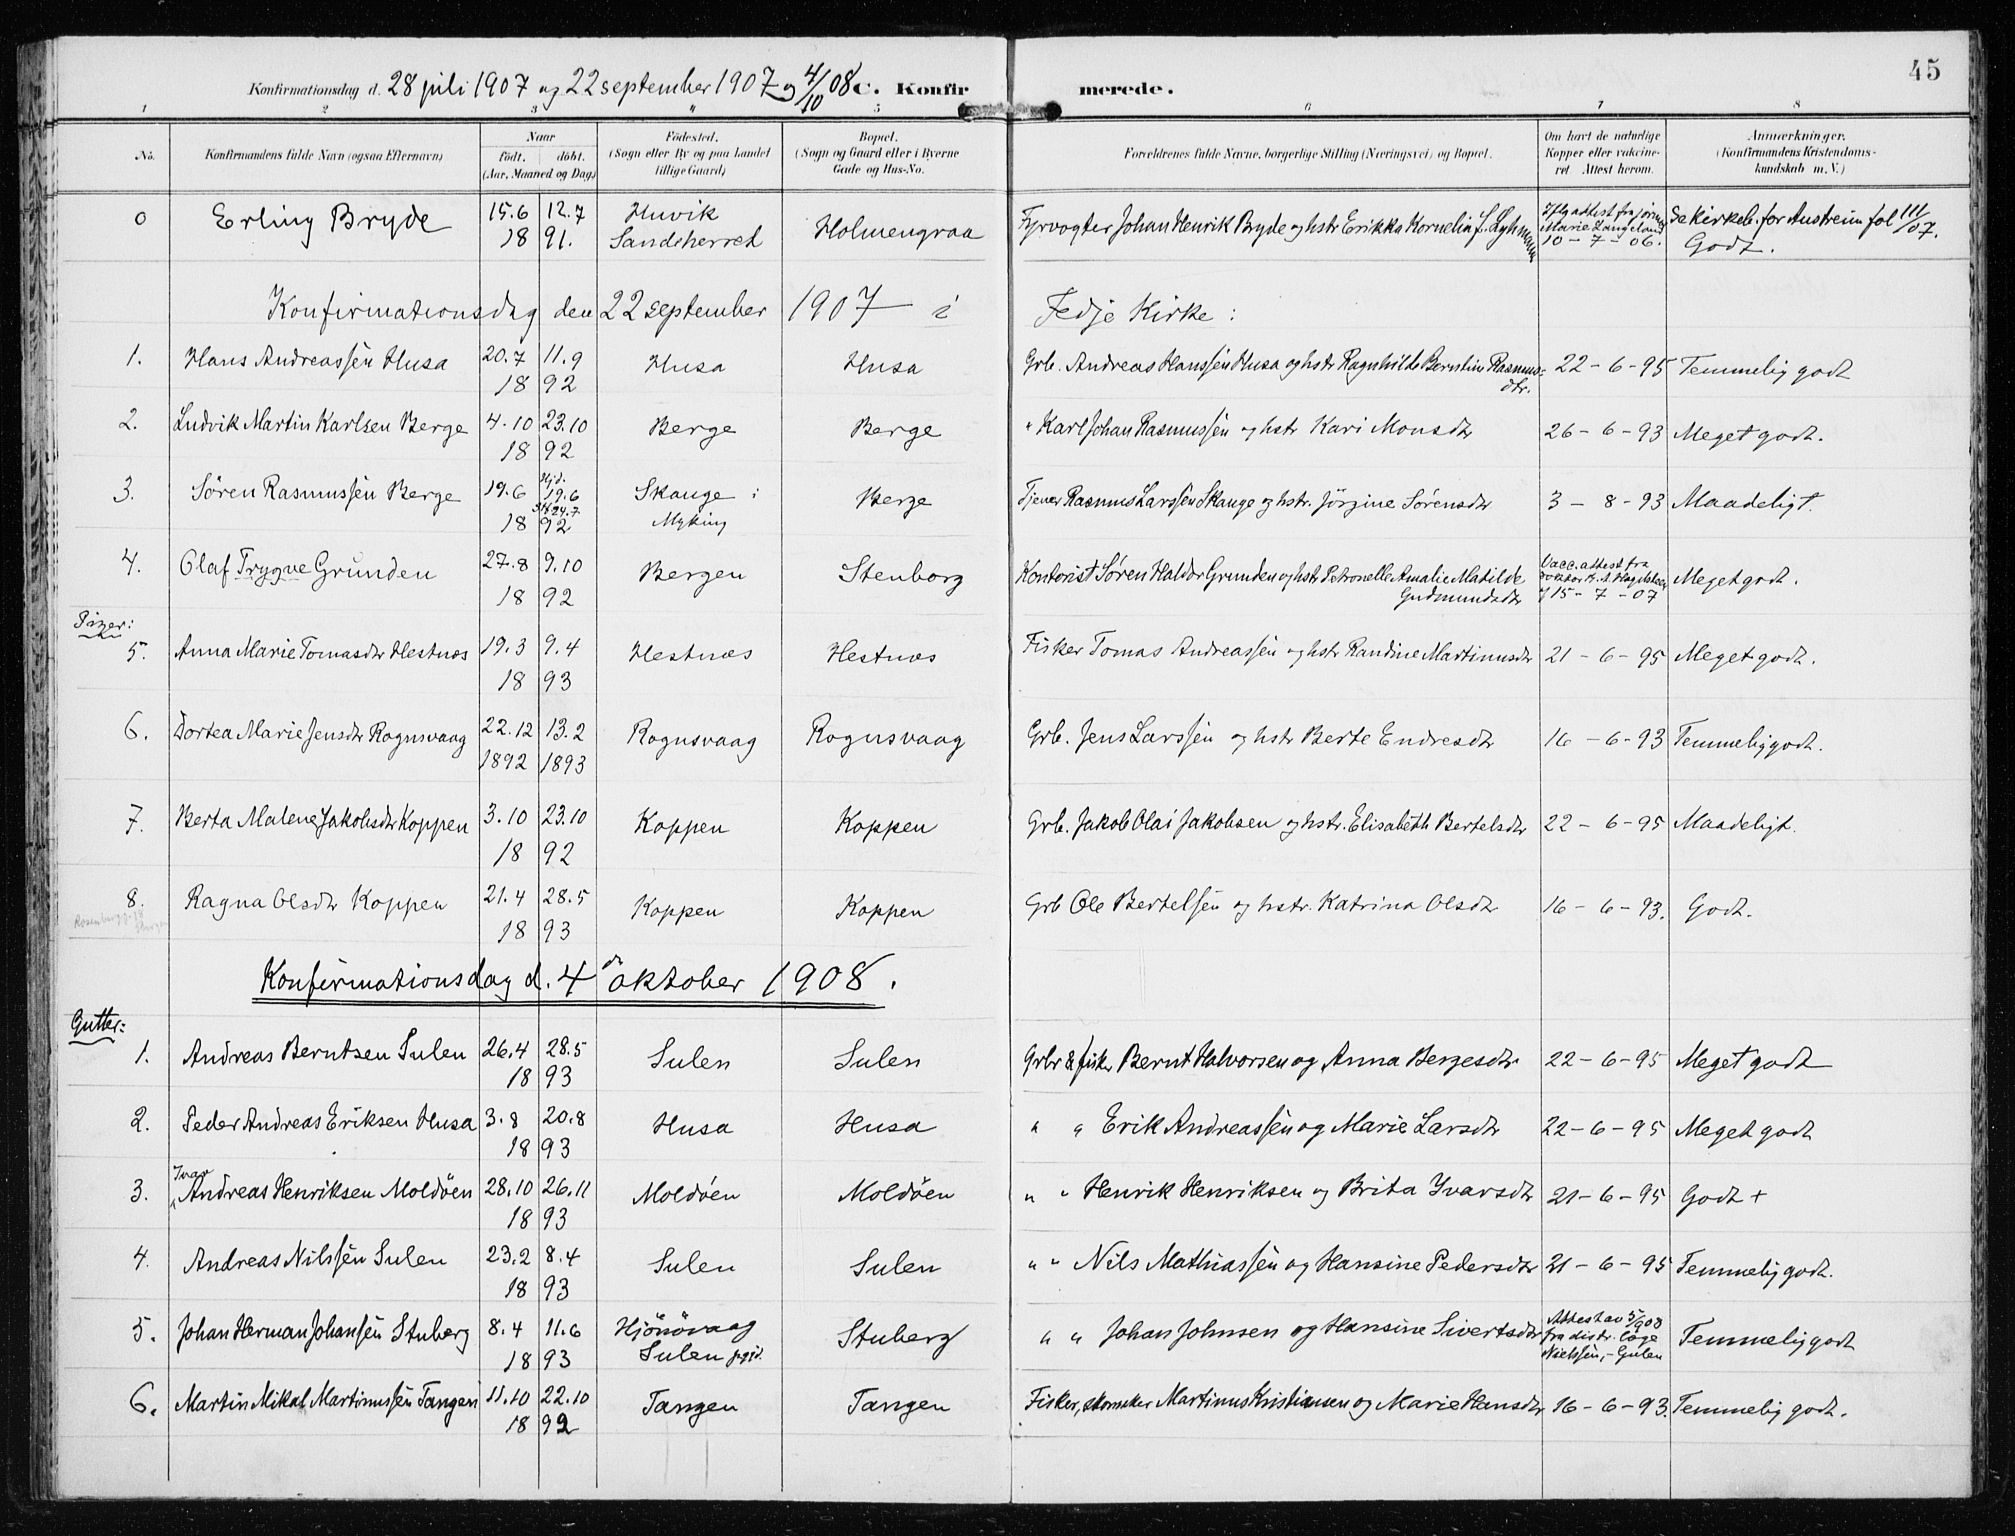 45
Konfirmationsdag d. 28 juli 1907 og 22 september 1907 og 4/10 08 C. Konfirmerede.
1 2 3 4 5 6 7 8
No. Konfirmandens fulde Navn (ogsaa Efternavn) Naar født. døbt. (Aar, Maaned og Dag) Fødested. (Sogn eller By og paa Landet tillige Gaard) Bopæl. (Sogn og Gaard eller i Byerne Gade og Hus-No. Forældrenes fulde Navne, borgerlige Stilling (Næringsvei) og Bopæl. Om havt de naturlige Kopper eller vakcineret. Attest herom. Anmærkninger. (Konfirmandens Kristendomskundskab m. V.)
0 Erling Bryde 15.6 12.7 1891. Huvik Sandeherred Holmengraa Fyrvogter Johan Henrik Bryde og hstr Erikka Kornelia f. Lyhmann Iflg attest fra jorm. Marie Langeland 10-7-06. Se kirkeb. for Austreim fol 111/07. Godt.
Konfirmationsdag den 22 september 1907 i Fedje Kirke:
1. Hans Andreassen Husa 20.7 11.9 1892 Husa Husa Grb. Andreas Hanssen Husa og hstr Ragnhilde Berntine Rasmusdtr. 22-6-95 Temmelig godt
2. Ludvik Martin Karlsen Berge 4.10 23.10 1892 Berge Berge " Karl Johan Rasmussen og hstr Kari Monsdtr 26-6-93 Meget godt.
3. Søren Rasmussen Berge 19.6 Hjd. 19.6 24.7 1892 Skauge i Myking Berge Tjener Rasmus Larssen Skauge og hstr. Jörgine Sörensdtr 3-8-93 Maadeligt.
4. Olaf Trygve Grunden 27.8 9.10 1892 Bergen Stenborg Kontorist Søren Haldor Grunden og hstr Petronelle Amalie Matilde Gudmundsdtr Vacc. attest fra doktor 15-7-07 Meget godt.
Piger:
5. Anna Marie Tomasdtr Hestnæs 19.3 9.4 1893 Hestnæs Hestnæs Fisker Tomas Andreassen og hstr Randine Martinusdtr 21-6-95 Meget godt.
6. Dortea Marie Jensdtr Rognsvaag 22.12 13.2 1892 1893 Rognsvaag Rognsvaag Grb. Jens Larssen og hstr Berte Endresdtr 16-6-93 Temmelig godt.
7. Berta Malene Jakobsdtr Koppen 3.10 23.10 1892 Koppen Koppen Grb. Jakob Olai Jakobsen og hstr. Elisabeth Bertelsdtr 22-6-95 Maadeligt.
8. Ragna Olsdtr Koppen 21.4 28.5 1893 Koppen Koppen Grb Ole Bertelsen og hstr. Katrina Olsdtr 16-6-93. Godt.
Konfirmationsdag d. 4 oktober 1908.
Gutter:
1. Andreas Berntsen Sulen 26.4 28.5 1893 Sulen Sulen Grbr & fisker Bernt Halvorsen og Anna Bergesdtr 22-6-95 Meget godt
2. Peder Andreas Eriksen Husa 3.8 20.8 1893 Husa Husa " " Erik Andreassen og Marie Larsdtr 22-6-95 Meget godt
3. Ivar Andreas Henriksen Moldöen 28.10 26.11 1893 Moldöen Moldöen " " Henrik Henriksen og Brita Yvarsdtr 21-6-95 Godt +
4. Andreas Nilssen Sulen 23.2 8.4 1893 Sulen Sulen " " Nils Mathiassen og Hansine Pedersdtr 21-6-95 Temmelig godt.
5. Johan Herman Johansen Stuberg 8.4 11.6 1893 Hjönövaag Sulen pgjd. Stuberg " " Johan Johnsen og Hansine Sivertsdtr Attest av 5/9 08 fra distr. læge Nielsen, - Gulen Temmelig godt
6. Martin Mikal Martinussen Tangen 11.10 22.10 1892 Tangen Tangen Fisker, skomaker Martinus Kristiansen og Marie Hansdtr 16-6-93. Temmelig godt.